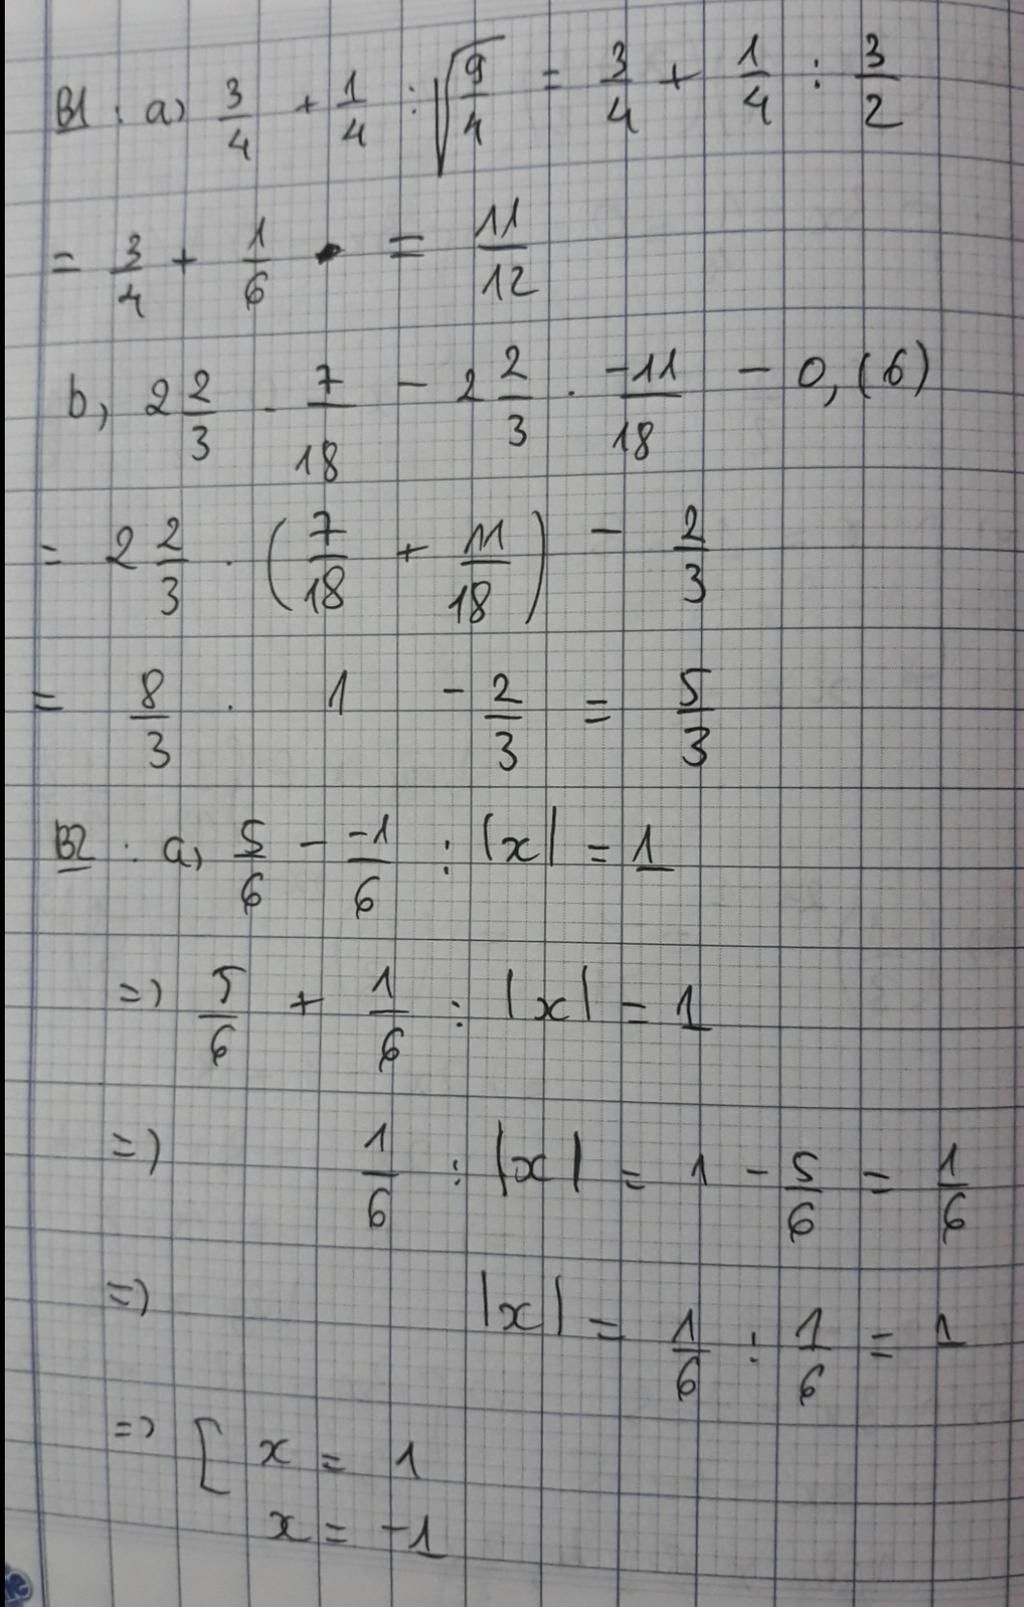 B1 : a) 3/4 + 1/4 : √(9/4) = 3/4 + 1/4 : 3/2
= 3/4 + 1/6 = 11/12
b, 2 2/3 . 7/18 - 2 2/3 . -11/18 - 0,(6)
= 2 2/3 . (7/18 + 11/18) - 2/3
= 8/3 . 1 - 2/3 = 5/3
B2 : a, 5/6 - -1/6 : |x| = 1
=) 5/6 + 1/6 : |x| = 1
=) 1/6 : |x| = 1 - 5/6 = 1/6
=) |x| = 1/6 : 1/6 = 1
=) [ x = 1
x = -1